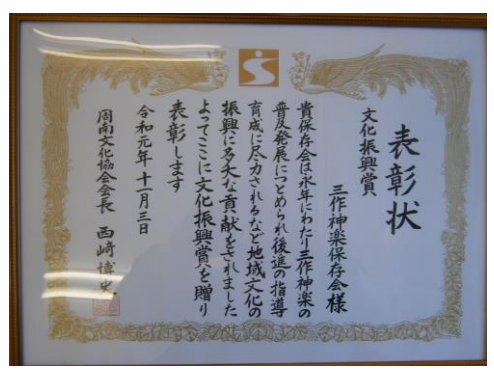 表彰状
文化振興賞
三作神楽保存会様
貴保存会は永年にわたり三作神楽の
普及発展につとめられ後進の指導
育成に尽力されるなど地域文化の
振興に多大な貢献をされました
よってここに文化振興賞を贈り
表彰します
令和元年十一月三日
周南文化協会会長 西﨑博史